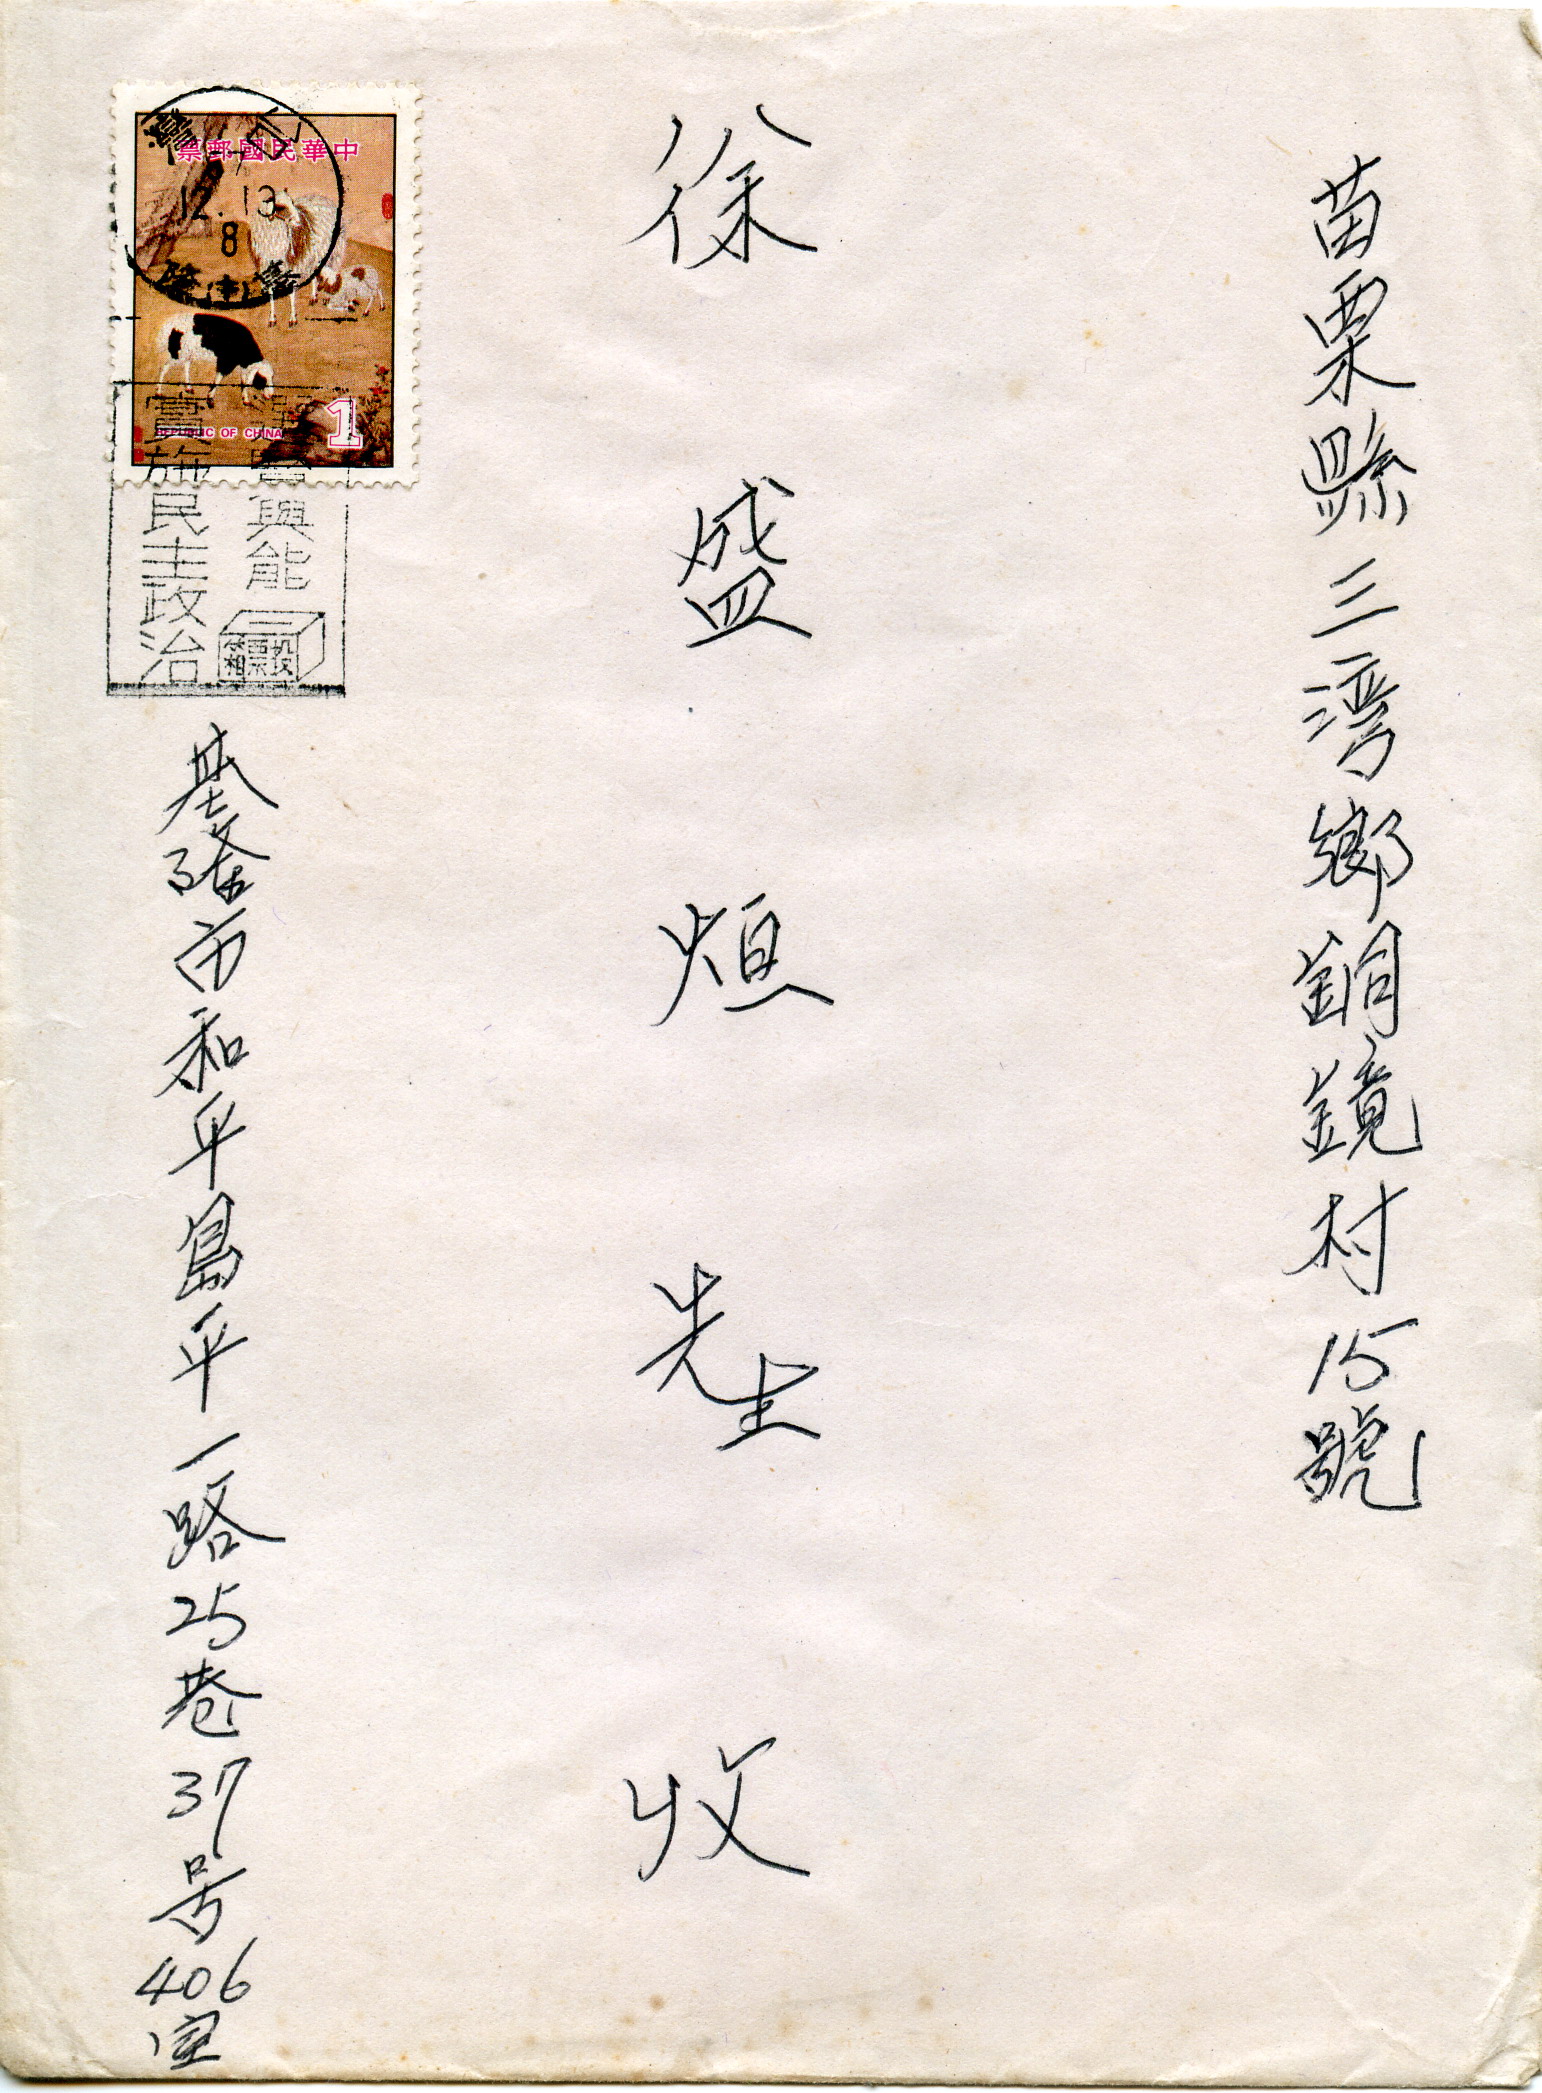 苗栗縣三湾鄉銅鏡村15號
徐盛烜先生收
中華民國郵票
12.13
8
REPUBLIC OF CHINA
1
選賢與能
實施民主政治
投票箱
基隆市和平島平一路25巷37号406室